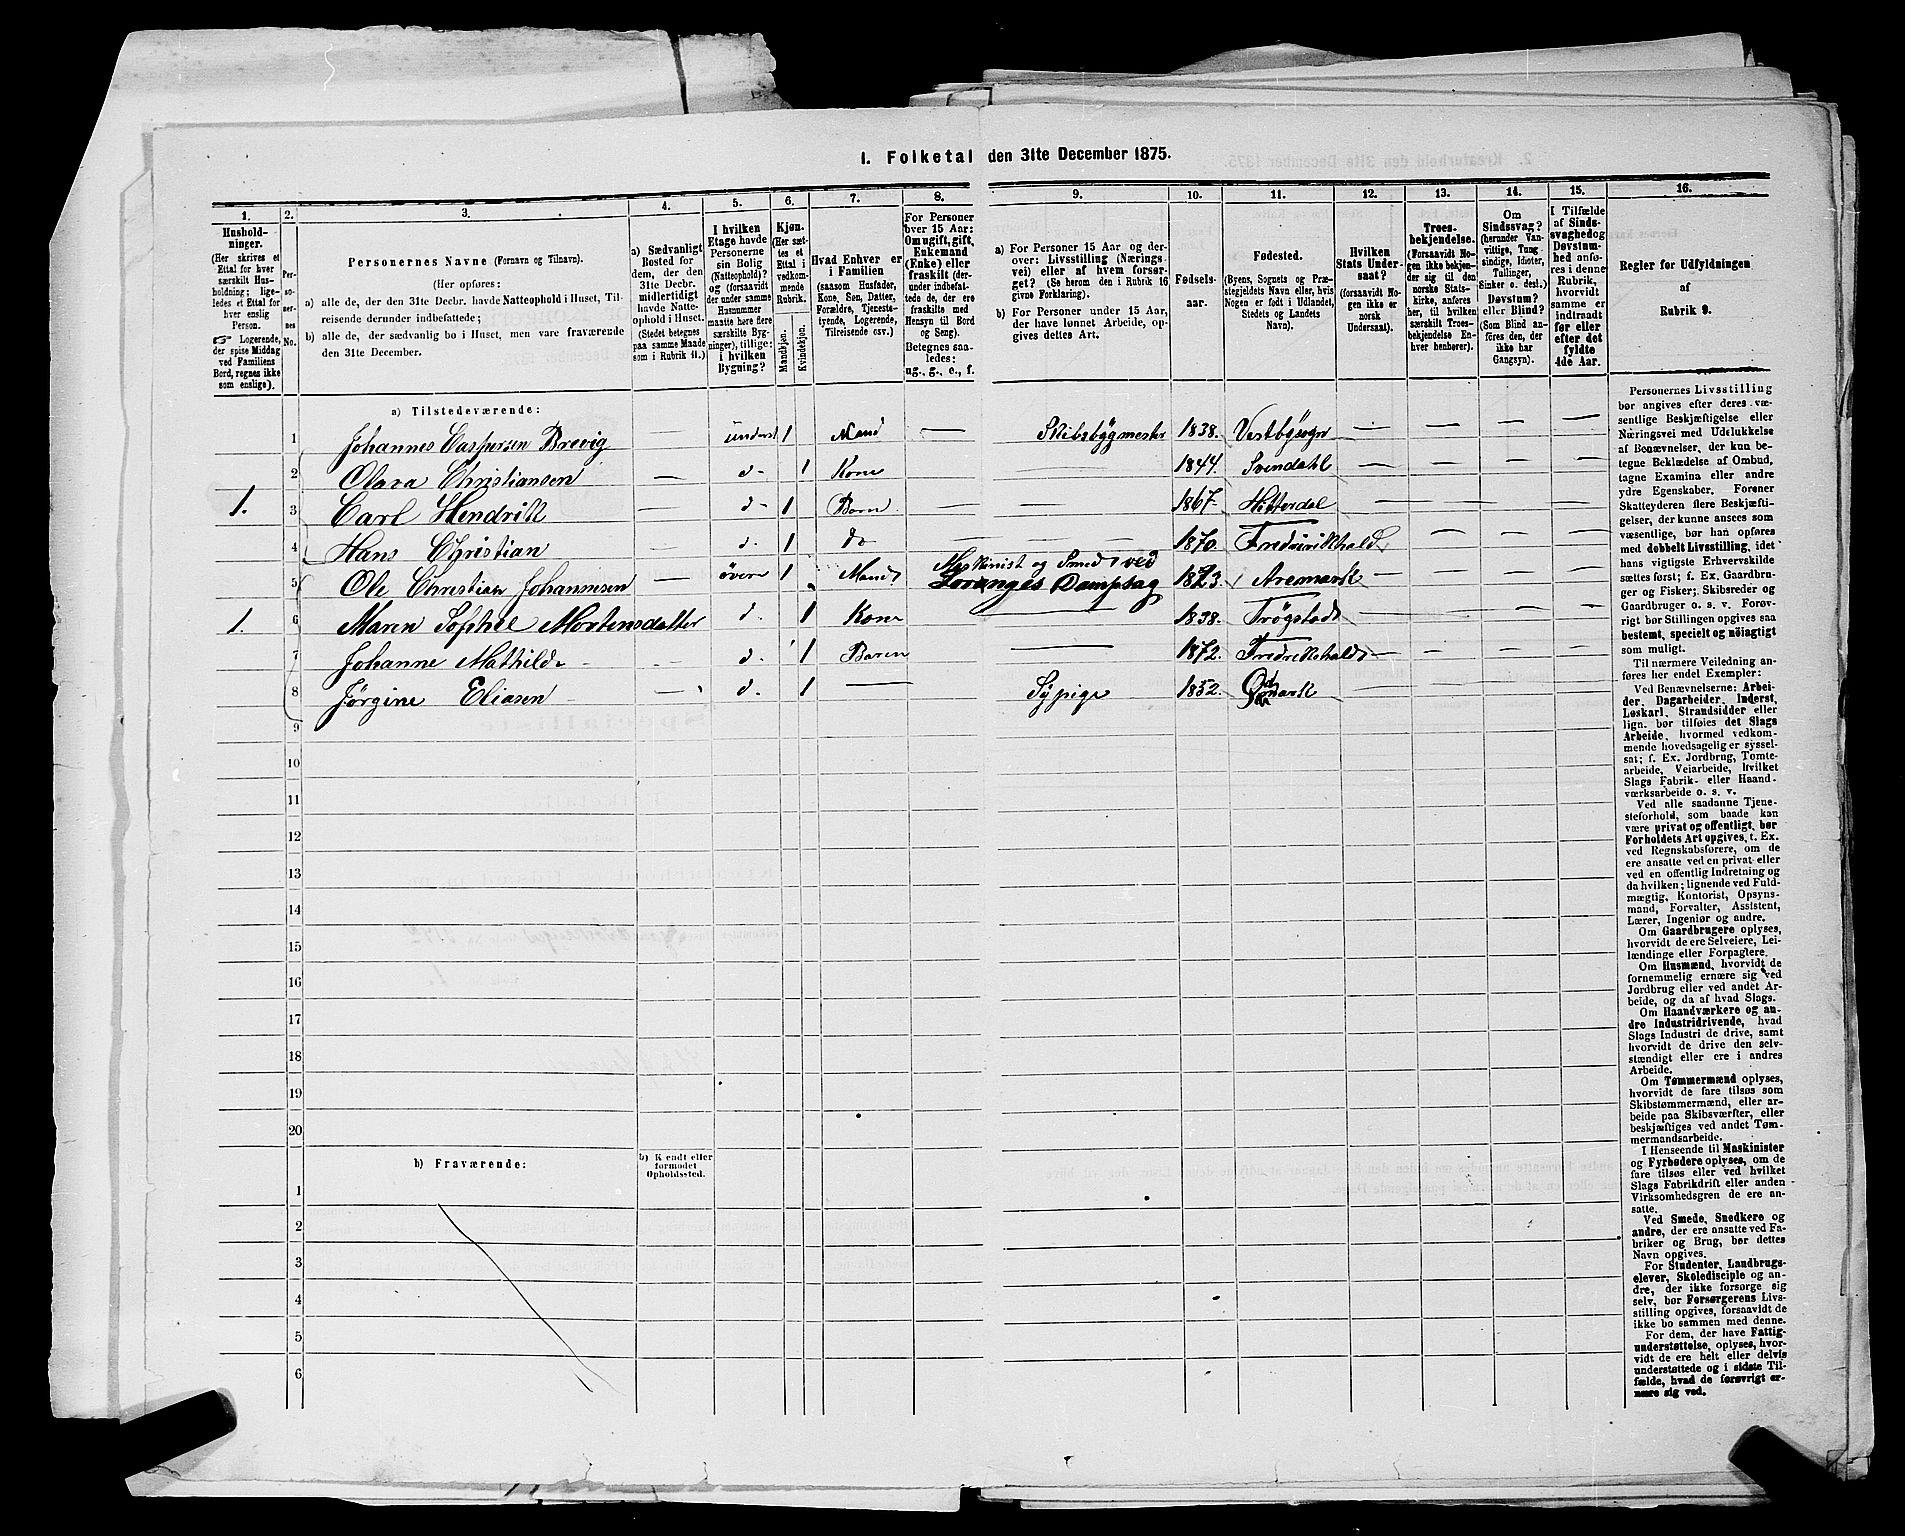 1. Folketal den 31te December 1875.
1. 2. 3. 4. 5. 6. 7. 8. 9. 10. 11. 12. 13. 14. 15. 16.
Husholdninger. (Her skrives et Ettal for hver særskilt Husholdning; ligeledes et Ettal for hver enslig Person. ☞ Logerende, der spise Middag ved Familiens Bord, regnes ikke som enslige).
Personernes No.
Personernes Navne (Fornavn og Tilnavn).
(Her opføres:
a) alle de, der den 31te Decbr. havde Natteophold i Huset, Tilreisende derunder indbefattede;
b) alle de, der sædvanlig bo i Huset, men vare fraværende den 31te December.
a) Sædvanligt Bosted for dem, der den 31te Decbr. midlertidigt havde Natteophold i Huset. (Stedet betegnes paa samme Maade som i Rubrik 11.)
I hvilken Etage havde Personerne sin Bolig (Natteophold)? og (forsaavidt der under samme Husnummer maatte høre flere særskilte Bygninger), tillige: i hvilken Bygning?
Kjøn. (Her sættes et Ettal i vedkommende Rubrik.
Mandkjøn. Kvindekjøn.
Hvad Enhver er i Familien (saasom Husfader, Kone, Søn, Datter, Forældre, Tjenestetyende, Logerende, Tilreisende osv.).
For Personer over 15 Aar: Om ugift, gift, Enkemand (Enke) eller fraskilt (derunder indbefattede de, der ere fraskilte med Hensyn til Bord og Seng). Betegnes saaledes: ug., g., e., f.
a) For Personer 15 Aar og derover: Livsstilling (Næringsvei) eller af hvem forsørget? (Se herom den i Rubrik 16 givne Forklaring).
b) For Personer under 15 Aar, der have lønnet Arbeide, opgives dettes Art.
Fødselsaar.
Fødested. (Byens, Sognets og Præstegjeldets Navn eller, hvis Nogen er født i Udlandet, Stedets og Landets Navn).
Hvilken Stats Undersaat? (forsaavidt Nogen ikke er norsk Undersaat).
Troesbekjendelse. (Forsaavidt Nogen ikke bekjender sig til den norske Statskirke, anføres her, til hvilken særskilt Troesbekjendelse Enhver henhører).
Om Sindssvag? (herunder Vanvittige, Tungsindige, Idioter, Tullinger, Sinker o. desl.) Døvstum? eller Blind? (Som Blind anføres den, der ikke har Gangsyn).
I Tilfælde af Sindssvaghed og Døvstumhed anføres i denne Rubrik, hvorvidt samme er indtraadt før eller efter det fyldte 4de Aar.
Regler for Udfyldningen af Rubrik 9.
a) Tilstedeværende:
1 Johannes Caspersen Brevig — underst 1 Mand — Skibsbygmester 1838. Vestby sogn — — — —
2 Clara Christiansen — d- 1 Kone — 1844. Svendahl — — — —
1. 3 Carl Hendrik — d- 1 Barn — 1867. Hitterdal — — — —
4 Hans Christian — d. 1 do — 1870. Fredrikhald — — — —
5 Ole Christian Johannesen — øvere 1 Mand Maskinist og Smed ved Sorenges Dampsag 1823. Aremark — — — —
1. 6 Maren Sophie Mortensdatter d. 1 Kone — 1838. Trøgstad — — — —
7 Johanne Mathilde — d. 1 Baren — 1872. Fredrikshald — — — —
8 Jørgine Eliasen — d. 1 — Sypige 1852. — — — —
9
10
11
12
13
14
15
16
17
18
19
20
b) Fraværende:
b) Kjendt eller formodet Opholdssted.
1
2
3
4
5
6
Personernes Livsstilling
bør angives efter deres væsentlige
Beskjæftigelse eller
Næringsvei med Udelukkelse
af Benævnelser, der kun betegne
Beklædelse af Ombud,
tagne Examina eller andre
ydre Egenskaber. Forener
Skatteyderen flere Beskjæftigelser,
der kunne ansees som
væsentlige, bør han opføres
med dobbelt Livsstilling, idet
hans vigtigste Erhvervskilde
sættes først; f. Ex. Gaardbruger
og Fisker; Skibsreder og
Gaardbruger o. s. v. Forøvrigt
bør Stillingen opgives saa
bestemt, specielt og nøiagtigt
som muligt.
Til nærmere Veiledning anføres
her endel Exempler:
Ved Benævnelserne: Arbeider,
Dagarbeider, Inderst,
Løskarl, Strandsidder eller
lign. bør tilføies det Slags
Arbeide, hvormed vedkommende
hovedsagelig er sysselsat;
f. Ex. Jordbrug, Tomtearbeide,
Veiarbeide, hvilket
Slags Fabrik- eller Haandværksarbeide
o. s. v.
Ved alle saadanne Tjenesteforhold,
som baade kan
være privat og offentligt, bør
Forholdets Art opgives, t. Ex.
ved Regnskabsførere, om de
ere ansatte ved en privat eller
ved en offentlig Indretning og
da hvilken; lignende ved Fuldmægtig,
Kontorist, Opsynsmand,
Forvalter, Assistent,
Lærer, Ingeniør og andre.
Om Gaardbrugere oplyses,
hvorvidt de ere Selveiere, Leilændinge
eller Forpagtere.
Om Husmænd, hvorvidt de
fornemmelig ernære sig ved
Jordbrug eller ved andet Arbeide,
og da af hvad Slags.
Om Haandværkere og andre
Industridrivende, hvad
Slags Industri de drive, samt
hvorvidt de drive den selvstændigt
eller ere i andres
Arbeide.
Om Tømmermænd oplyses,
hvorvidt de fare tilsøs som
Skibstømmermænd, eller arbeide
paa Skibsværfter, eller
beskjæftiges ved andet Tømmermandsarbeide.
I Henseende til Maskinister
og Fyrbødere oplyses, om de
fare tilsøs eller ved hvilket
Slags Fabrikdrift eller anden
Virksomhedsgren de ere ansatte.
Ved Smede, Snedkere og
andre, der ere ansatte ved Fabriker
og Brug, bør dettes
Navn opgives.
For Studenter, Landbrugselever,
Skoledisciple og andre,
der ikke forsørge sig
selv, bør Forsørgerens Livsstilling
opgives, forsaavidt de
ikke bo sammen med denne.
For dem, der have Fattigunderstøttelse,
oplyses, hvorvidt
de ere helt eller delvis
understøttede og i sidste Tilfælde,
hvad de forøvrigt ernære
sig ved.